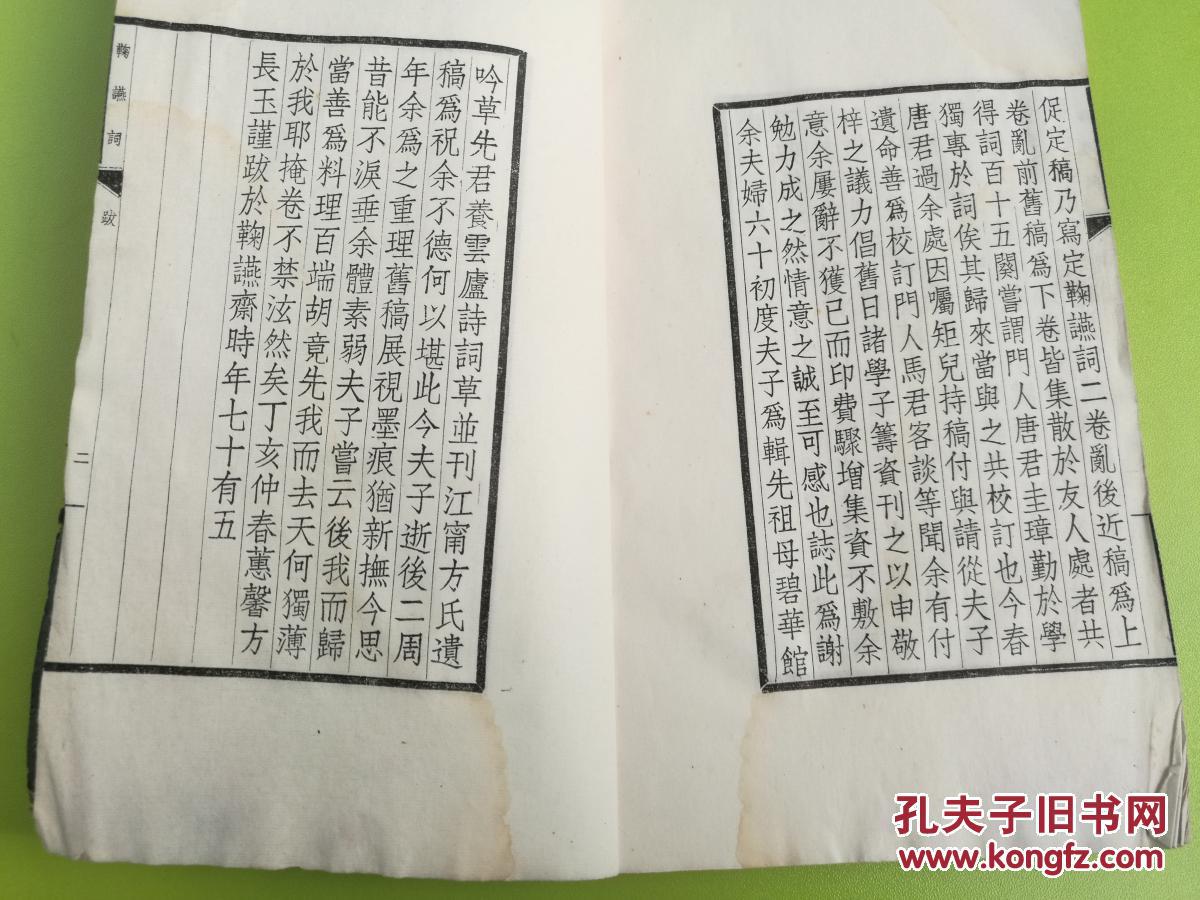 促定稿乃寫定鞠讌詞二卷亂後近稿爲上
卷亂前舊稿爲下卷皆集散於友人處者共
得詞百十五闋嘗謂門人唐君圭璋勤於學
獨專於詞俟其歸來當與之共校訂也今春
唐君過余處因囑矩兒持稿付與請從夫子
遺命善爲校訂門人馬君客談等聞余有付
梓之議力倡舊日諸學子籌資刊之以申敬
意余屢辭不獲已而印費驟增集資不敷余
勉力成之然情意之誠至可感也誌此爲謝
余夫婦六十初度夫子爲輯先祖母碧華館
吟草先君養雲廬詩詞草並刊江甯方氏遺
稿爲祝余不德何以堪此今夫子逝後二周
年余爲之重理舊稿展視墨痕猶新撫今思
昔能不淚垂余體素弱夫子嘗云後我而歸
當善爲料理百端胡竟先我而去天何獨薄
於我耶掩卷不禁泫然矣丁亥仲春蕙馨方
長玉謹跋於鞠讌齋時年七十有五
鞠讌詞 跋 二
孔夫子旧书网
www.kongfz.com